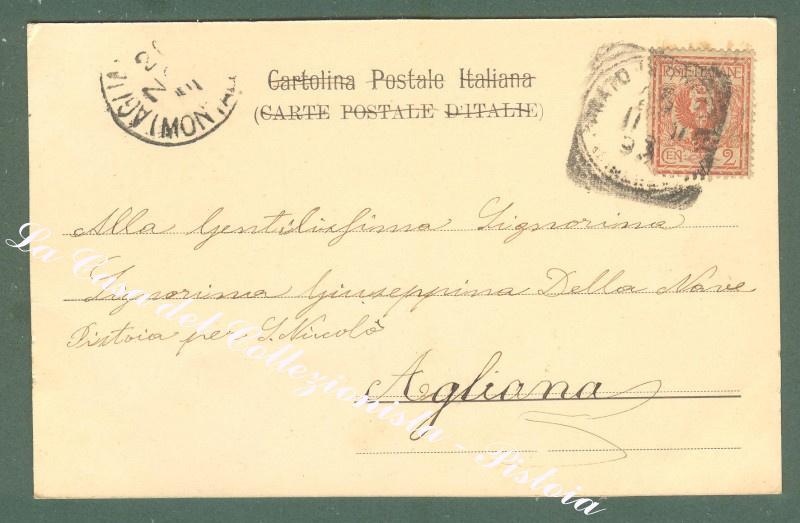 Cartolina Postale Italiana
(CARTE POSTALE D'ITALIE)
POSTE ITALIANE
CEN. 2
Alla Gentilissima Signorina
Signorina Giuseppina Della Nave
Pistoia per S. Niccolò
Agliana
La Casa del Collezionista - Pistoia